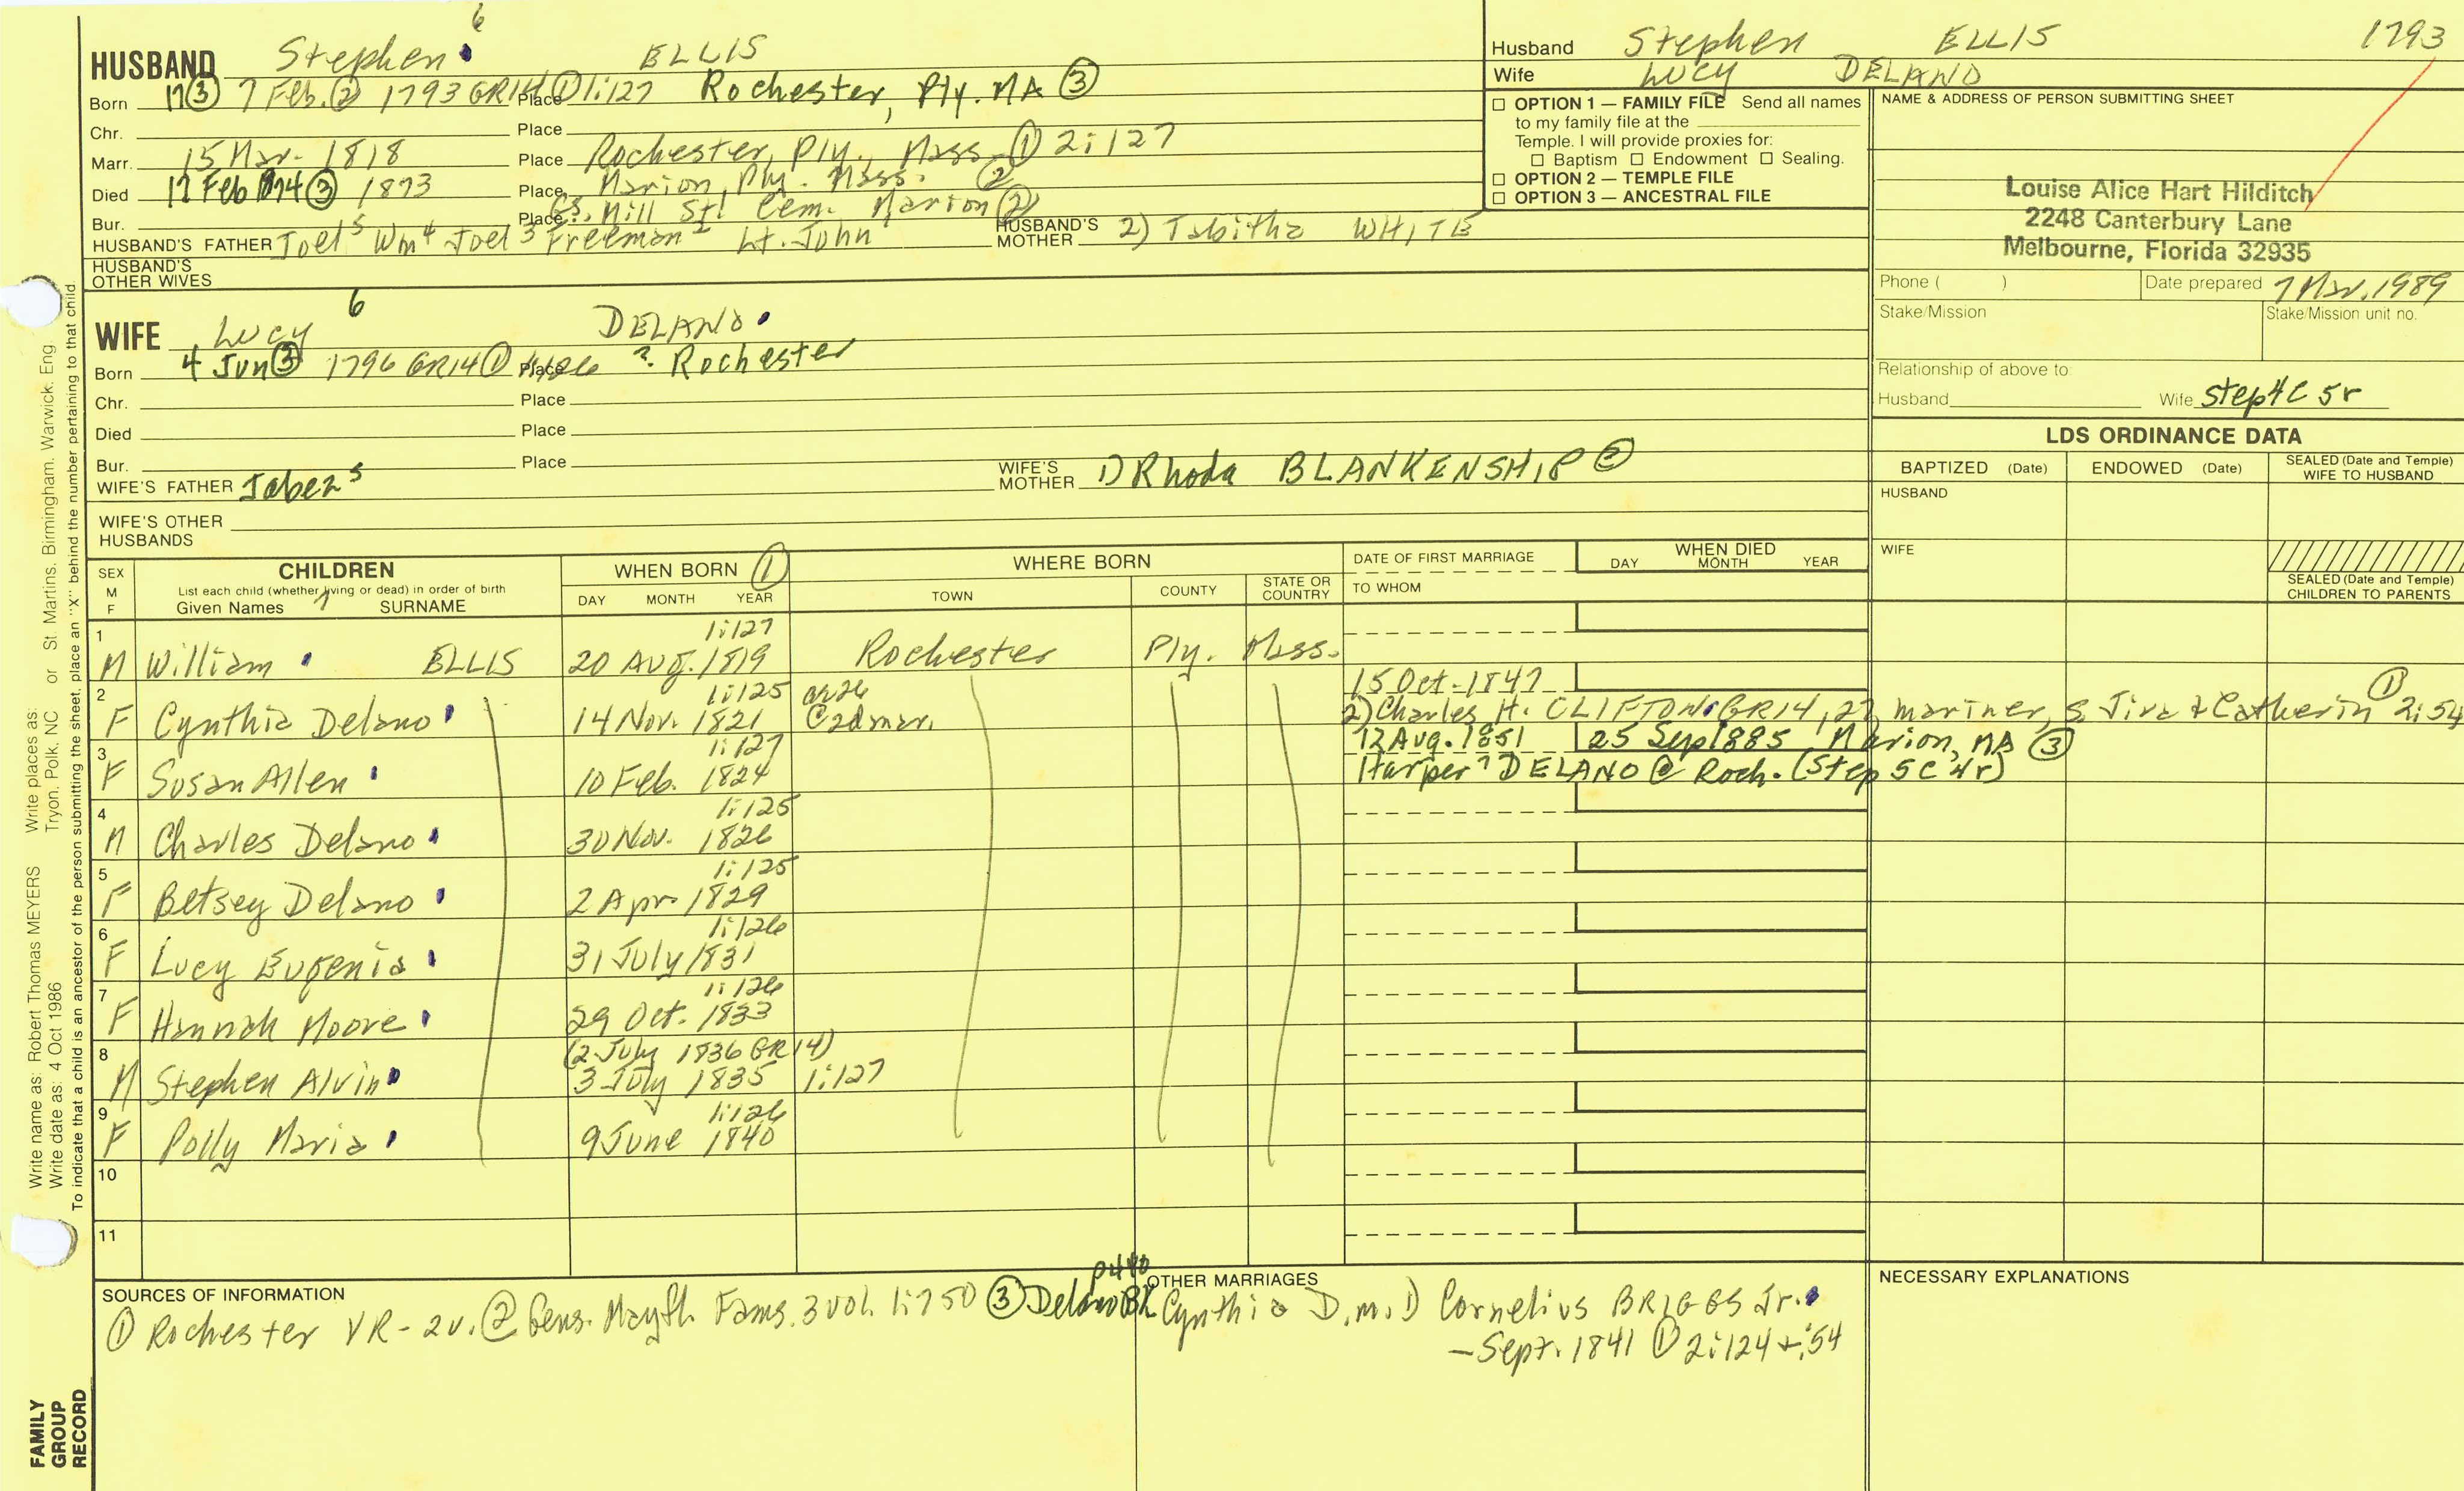 HUSBAND Stephen 6 ELLIS
Born 17 ③ 7 Feb. ② 1793 GR14 ① 1:127 Place Rochester, Ply. MA ③
Chr. Place
Marr. 15 Mar. 1818 Place Rochester, Ply., Mass. ① 2:127
Died 17 Feb 1874 ③ 1873 Place Marion, Ply. Mass. ②
Bur. Place Mill St! Cem. Marion ②
HUSBAND'S FATHER Joel 5 Wm 4 Joel 3 Freeman 2 Lt. John 1 HUSBAND'S MOTHER 2) Tabitha WHITE
HUSBAND'S OTHER WIVES
WIFE Lucy 6 DELANO
Born 4 Jun ③ 1796 GR14 ① Place ? Rochester
Chr. Place
Died Place
Bur. Place
WIFE'S FATHER Jabez 5 WIFE'S MOTHER 1) Rhoda BLANKENSHIP ②
WIFE'S OTHER HUSBANDS
Husband Stephen ELLIS 1793
Wife Lucy DELANO
☐ OPTION 1 — FAMILY FILE Send all names
to my family file at the
Temple. I will provide proxies for:
☐ Baptism ☐ Endowment ☐ Sealing.
☐ OPTION 2 — TEMPLE FILE
☐ OPTION 3 — ANCESTRAL FILE
NAME & ADDRESS OF PERSON SUBMITTING SHEET
Louise Alice Hart Hilditch
2248 Canterbury Lane
Melbourne, Florida 32935
Phone ( ) Date prepared 7 Mar. 1989
Stake/Mission Stake/Mission unit no.
Relationship of above to:
Husband Wife step4C 5r
LDS ORDINANCE DATA
BAPTIZED (Date) ENDOWED (Date) SEALED (Date and Temple) WIFE TO HUSBAND
HUSBAND
WIFE
SEALED (Date and Temple) CHILDREN TO PARENTS
SEX M F CHILDREN WHEN BORN ① WHERE BORN DATE OF FIRST MARRIAGE WHEN DIED
List each child (whether living or dead) in order of birth
Given Names 7 SURNAME DAY MONTH YEAR TOWN COUNTY STATE OR COUNTRY TO WHOM DAY MONTH YEAR
1 1:127
M William ELLIS 20 Aug. 1819 Rochester Ply. Mass.
2 1:125 15 Oct. 1847
F Cynthia Delano 14 Nov. 1821 2) Charles H. CLIFTON GR14, 27, mariner, s. Jira & Catherin ① 2:54
3 1:127 12 Aug. 1851 25 Sep 1885 Marion, MA ③
F Susan Allen 10 Feb. 1824 Harper 7 DELANO @ Roch. (Step 5C 4r)
4 1:125
M Charles Delano 30 Nov. 1826
5 1:125
F Betsey Delano 2 Apr. 1829
6 1:126
F Lucy Eugenia 31 July 1831
7 1:126
F Hannah Moore 29 Oct. 1833
8 (2 July 1836 GR14)
M Stephen Alvin 3 July 1835 1:127
9 1:126
F Polly Maria 9 June 1840
10
11
SOURCES OF INFORMATION
① Rochester VR - 2v. ② Gens. Mayfl. Fams. 3 vol. 1:750 ③ Delano BK p440
OTHER MARRIAGES
Cynthia D. m. 1) Cornelius BRIGGS Jr.
— Sept. 1841 ① 2:124 + :54
NECESSARY EXPLANATIONS
Write name as: Robert Thomas MEYERS Write places as: Tryon, Polk, NC or St. Martins, Birmingham, Warwick, Eng
Write date as: 4 Oct 1986
To indicate that a child is an ancestor of the person submitting the sheet, place an "X" behind the number pertaining to that child.
FAMILY
GROUP
RECORD